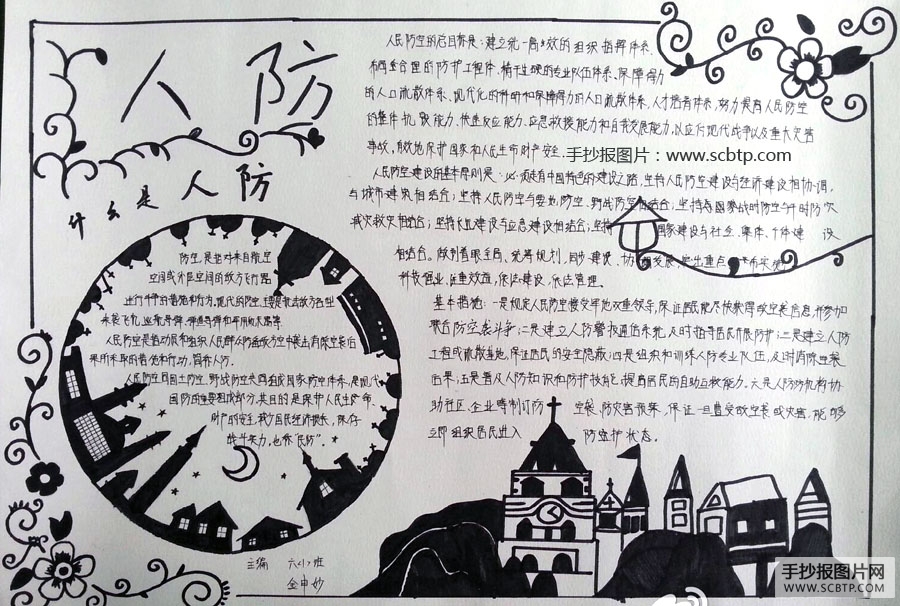 人防
什么是 人防
防空是指对来自航空
空间或外层空间的敌方飞行器
进行斗争的措施和行动,现代的防空主要是抗击敌方各型
人民防空是动员和组织人民群众防备敌方空中袭击消除空袭后
果所采取的措施和行动,简称人防。
人民防空同国土防空、野战防空共同组成国家防空体系,是现代
国防的重要组成部分,其目的是保护人民生命、
财产的安全,减少国民经济损失,保存
战斗实力,也称"民防"。
主编 六(1)班
人民防空的总目标是:建立统一高效的组织指挥体系、
布局合理的防护工程体、精干过硬的专业队伍体系、保障得力
的人口疏散体系、现代化的科研和保障得力的人口疏散体系、人才培育体系,努力提高人民防空
的整体抗毁能力、快速反应能力、应急救援能力和自我发展能力,以应付现代战争以及重大灾害
事故,有效地保护国家和人民生命财产安全。手抄报图片:www.scbtp.com
人民防空建设的基本原则是:必须走有中国特色的建设之路,坚持人民防空建设与经济建设相协调、
与城市建筑相结合;坚持人民防空与要地防空、野战防空相结合;坚持国家战时防空与平时防灾
减灾救灾相结合;坚持长远建设与应急建设相结合;坚持 国家建设与社会、集体、个体建 设
相结合。做到着眼全局、统筹规划、同步建设、协调发展、突出重点
科技强业,注重效益,依法建设,依法管理。
基本措施:一是规定人民防空接受军地双重领导,保证居民能尽快获得敌空袭信息,并参加
群众防空袭斗争;二是建立人防警报通信系统,及时指导居民疏散防护;三是建立人防
工程或疏散基地,保证居民的安全隐蔽;四是组织和训练人防专业队伍,及时消除空袭
后果;五是普及人防知识和防护技能,提高居民的自助互救能力。六是人防机构协
助社区、企业等制订防 空袭、防灾害预案,保证一旦遭受敌空袭或灾害,能够
立即组织居民进入 防空护状态。
手抄报图片网
WWW.SCBTP.COM